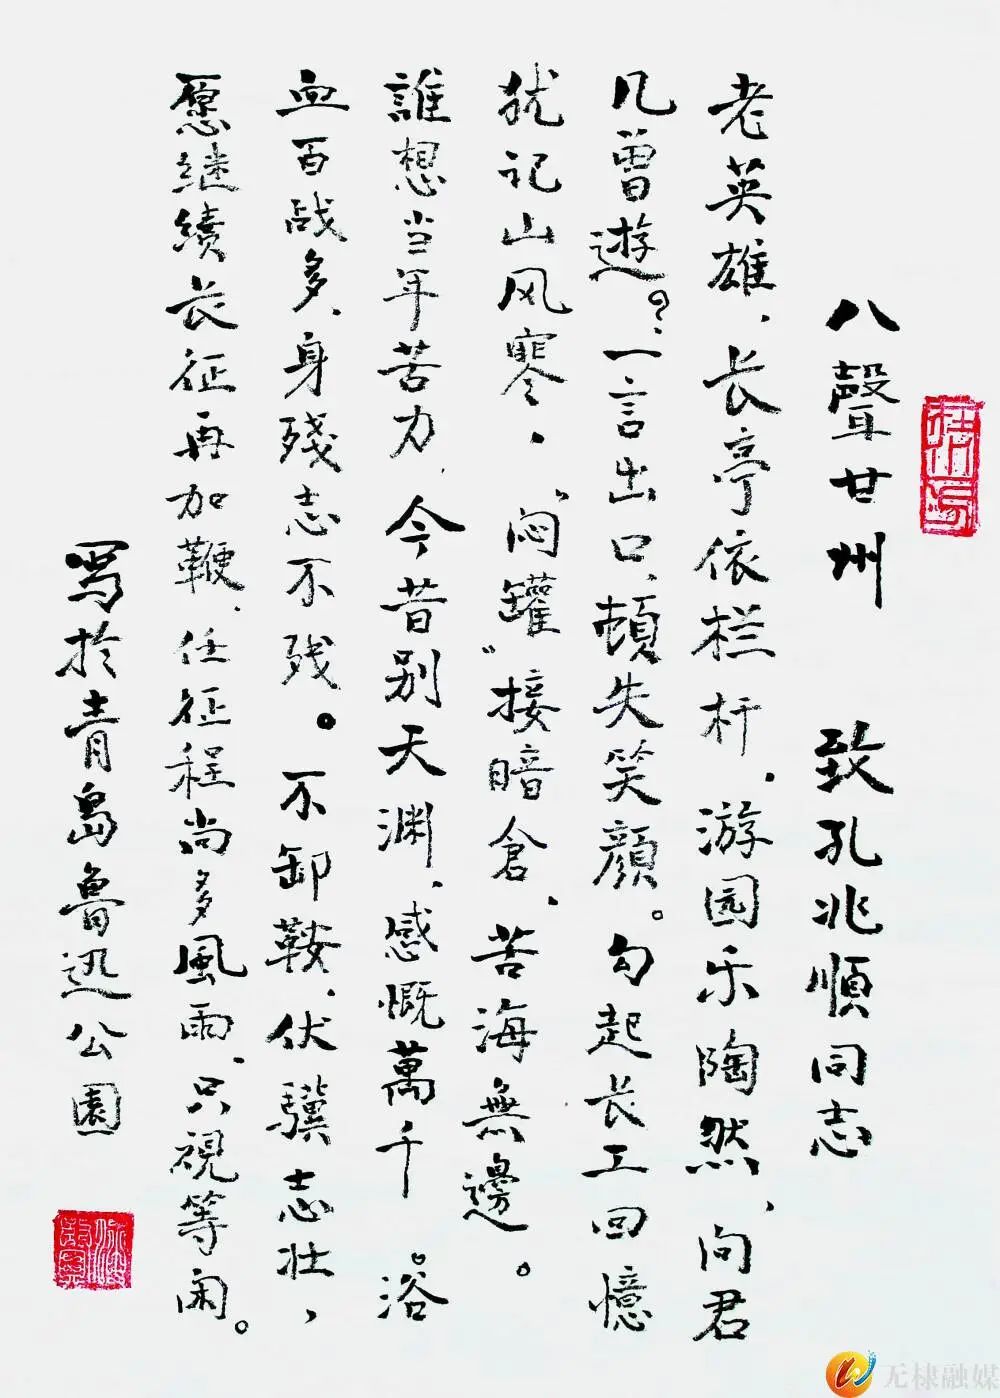 八聲甘州　致孔兆順同志
老英雄，长亭依栏杆，游园乐陶然，问君
几曾遊？一言出口，頓失笑顔。勾起长工回憶
犹记山风寒，“闷罐”接暗倉，苦海無邊。
誰想当年苦力，今昔别天渊，感慨萬千。浴
血百战多，身殘志不残。不卸鞍，伏骥志壮，
愿继續长征再加鞭，任征程尚多風雨，只視等闲。
写於青島鲁迅公園
无棣融媒